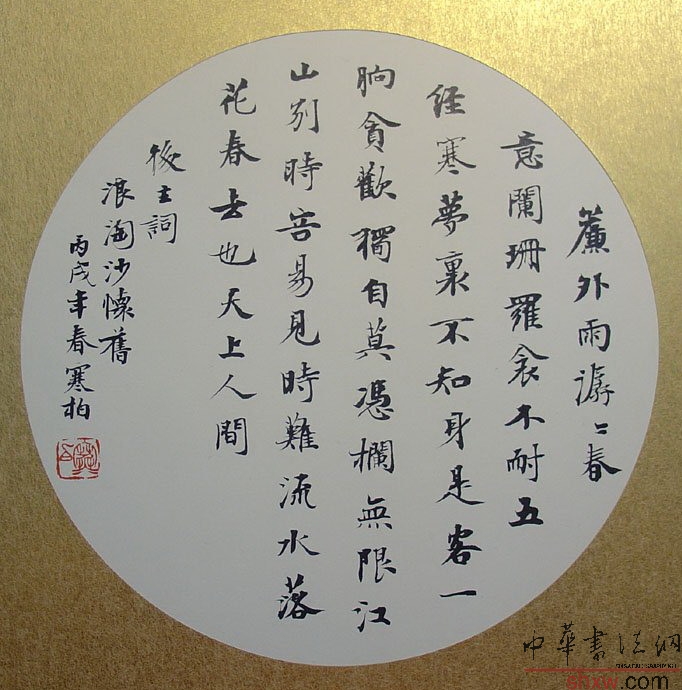 簾外雨潺〻春
意闌珊羅衾不耐五
经寒夢裏不知身是客一
晌貪歡獨自莫憑欄無限江
山别時容易見時難流水落
花春去也天上人間
後主詞
浪淘沙懷舊
丙戌年春寒柏
中華書法網
shxw.com